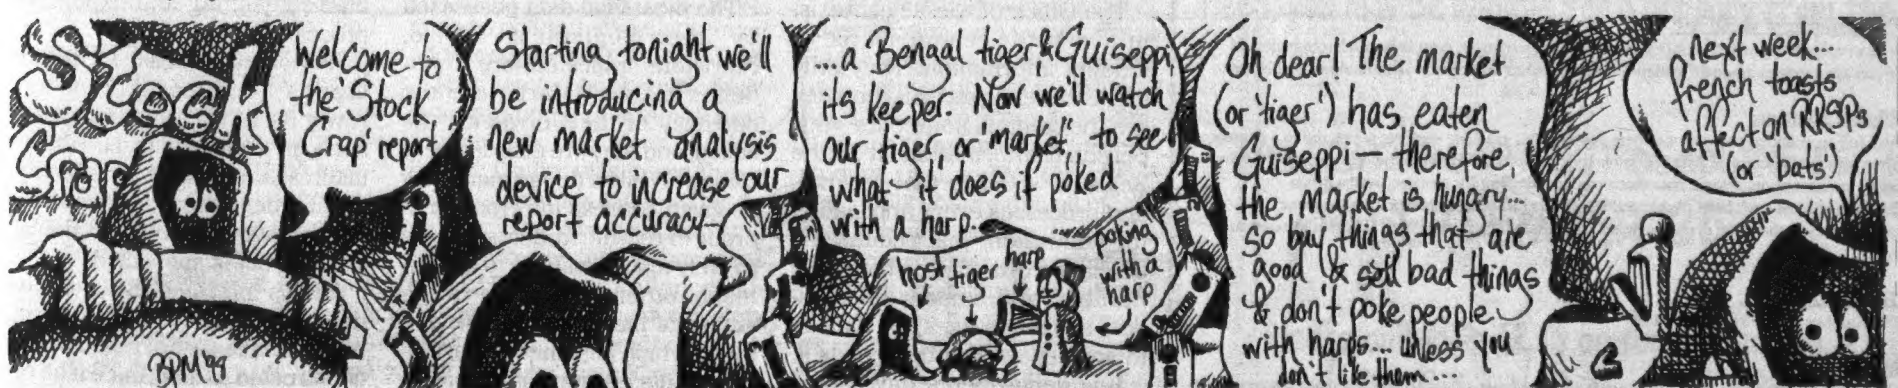 Stock
Crap
Welcome to
the 'Stock
Crap' report
Starting tonight we'll
be introducing a
new market analysis
device to increase our
report accuracy—
...a Bengal tiger & Guiseppi,
its keeper. Now we'll watch
our tiger, or 'market', to see
what it does if poked
with a harp...
host
tiger
harp
poking
with a
harp
Oh dear! The market
(or 'tiger') has eaten
Guiseppi — therefore,
the market is hungry...
so buy things that are
good & sell bad things
& don't poke people
with harps... unless you
don't like them...
next week...
french toasts
affect on RRSPs
(or 'bats')
BPM '99